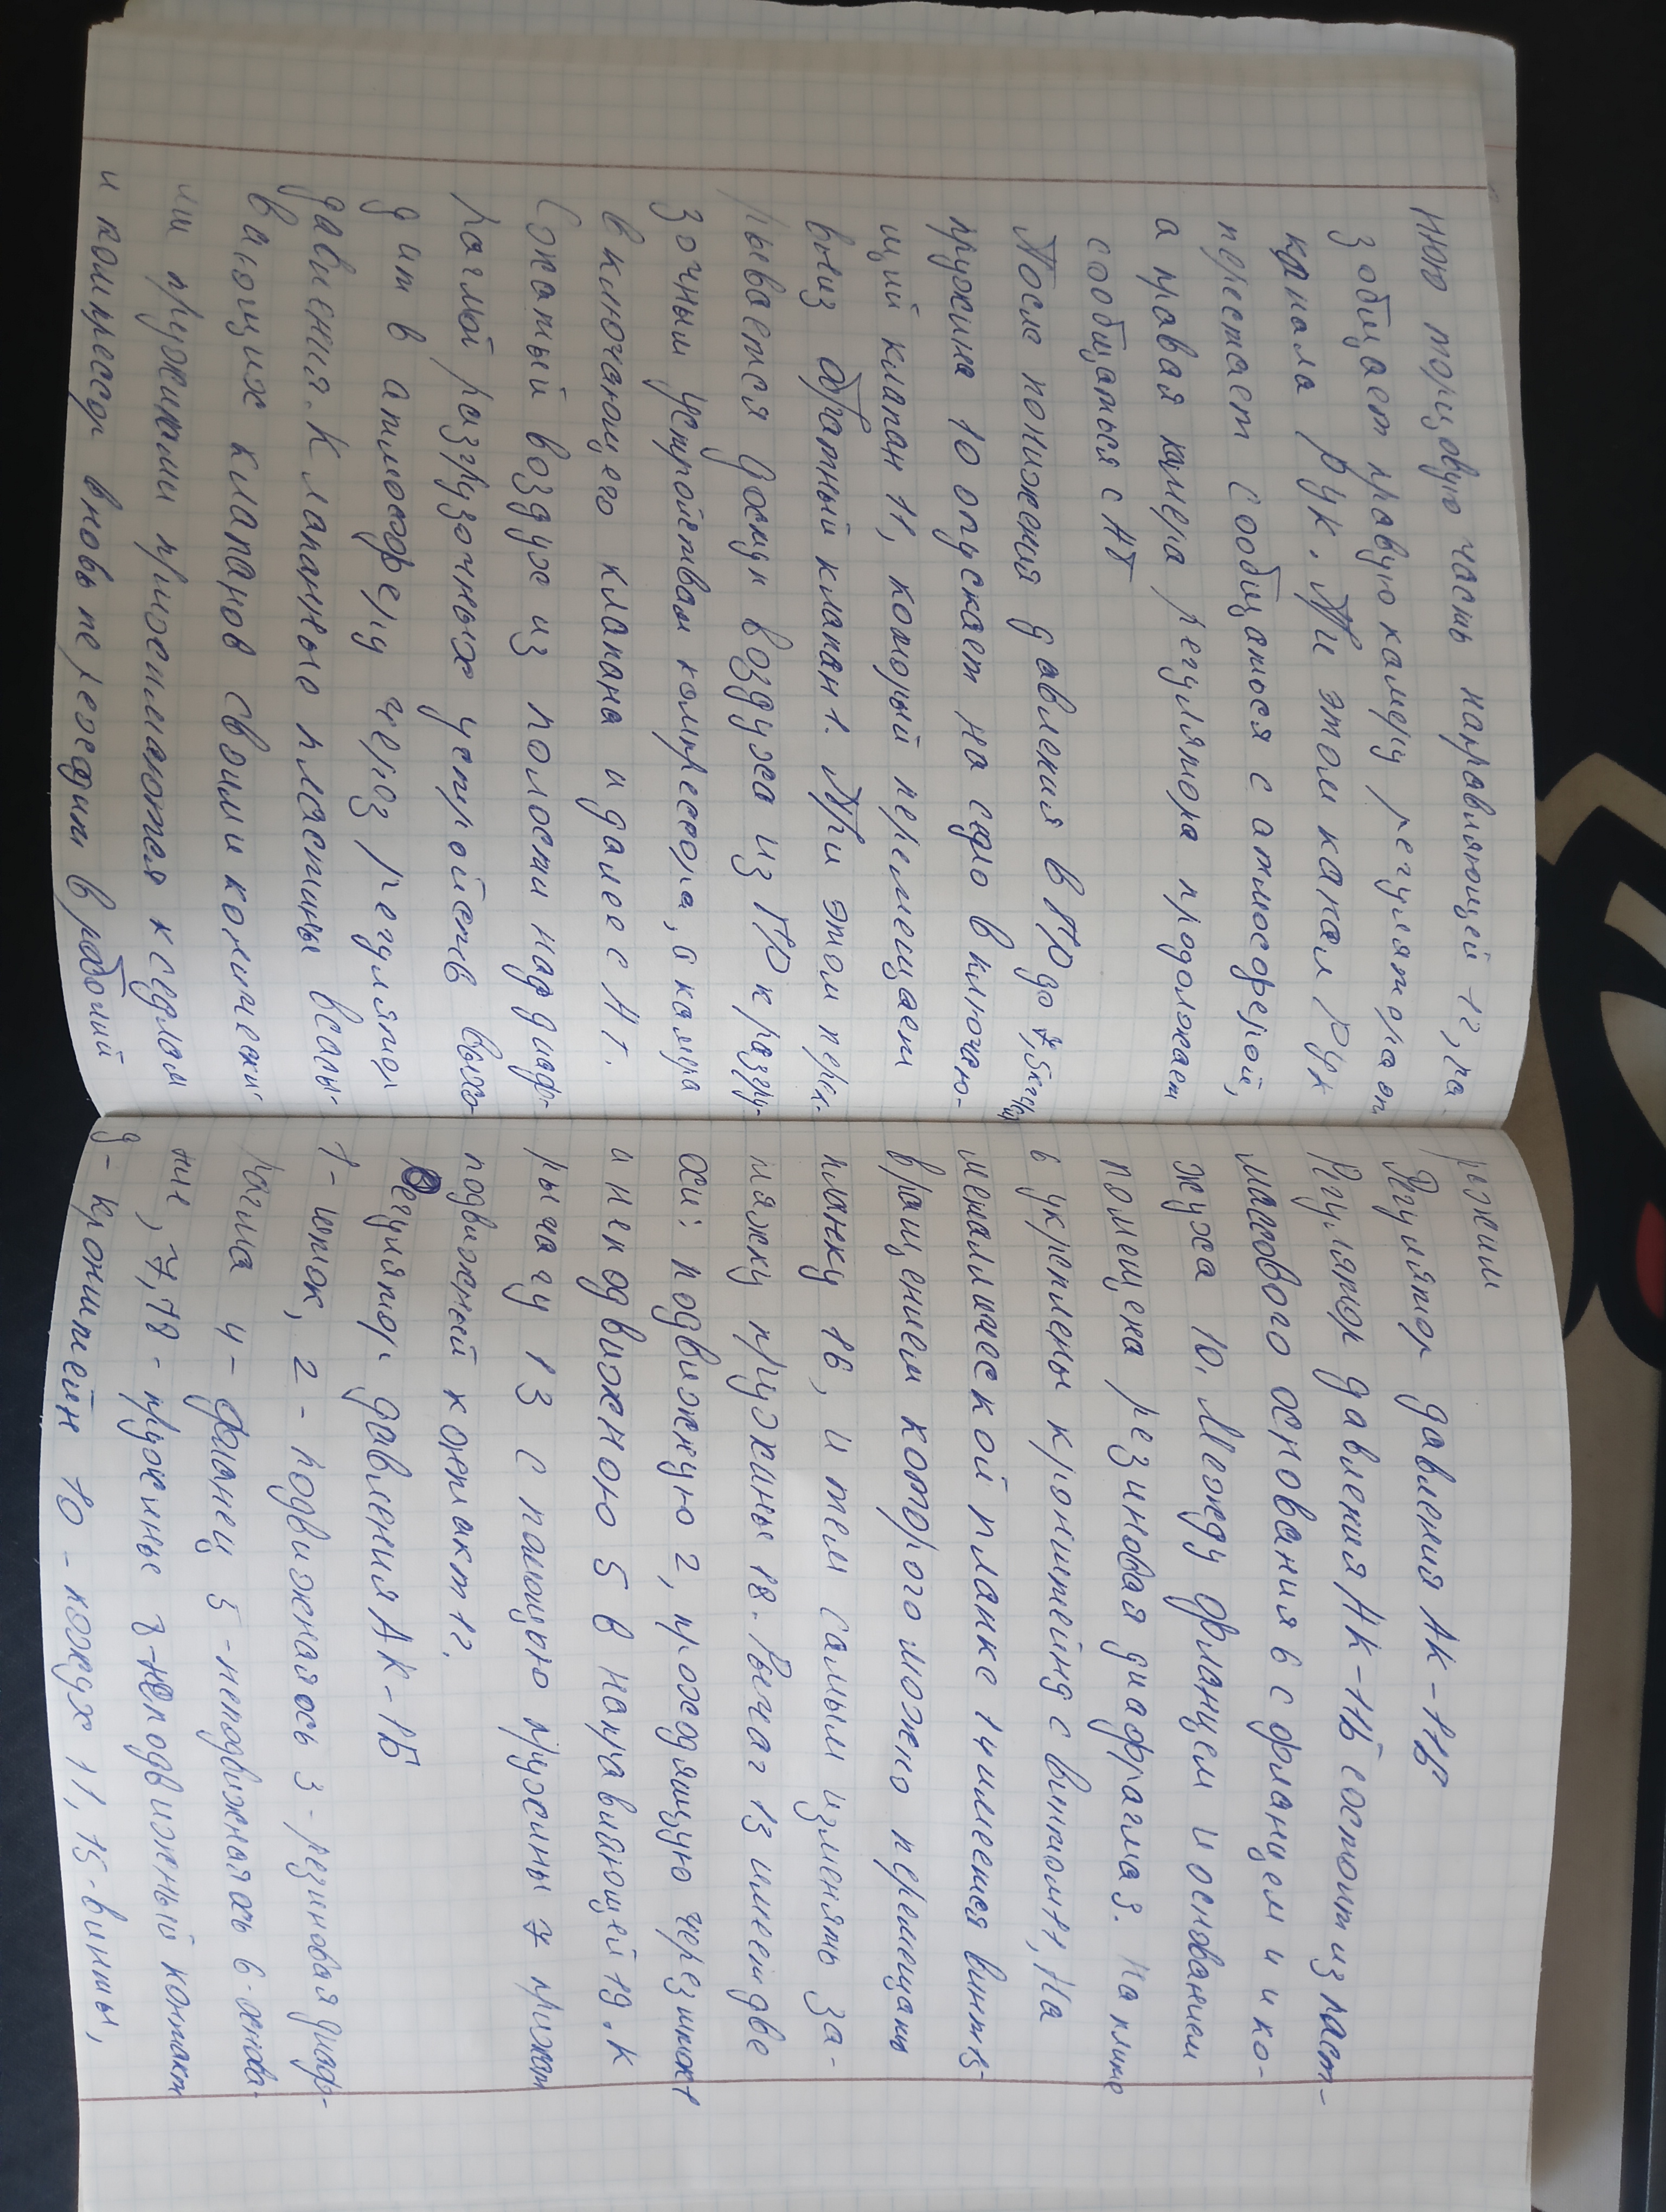 нюю торцовую часть направляющей 12, ра-
зобщает правую камеру регулятора от
канала РУК. При этом канал РУК
перестает сообщаться с атмосферой,
а правая камера регулятора продолжает
сообщаться с АТ
После понижения давления в ГР до 7,5кгс/
пружина 10 опускает на седло включаю-
щий клапан 11, который перемещает
вниз обратный клапан 1. При этом прек-
рывается доступ воздуха из ГР к разгру-
зочным устройствам компрессора, а камера
включающего клапана и далее с Ат.
Сжатый воздух из полости над диаф-
рагмой разгрузочных устройств выхо-
дит в атмосферу через регулятор
давления. Клапанные пластины всасы-
вающих клапанов своими коничес­ки
ми пружинами прижимаются к седлам
и компрессор вновь переходит в рабочий
режим
Регулятор давления АК-11Б
Регулятор давления АК-11Б состоит из пласт-
массового основания 6 с фланцем и ко-
жуха 10. Между фланцем и основанием
помещена резиновая диафрагма 3. На плите
6 укреплены кронштейн 9 с винтом 11, На
металлической планке 14 имеется винт 15
вращением которого можно перемещать
планку 16, и тем самым изменять за-
тяжку пружины 18. Рычаг 13 имеет две
оси: подвижную 2, проходящую через шток 1
и неподвижною 5 в направляющей 19. К
рычагу 13 с помощью пружины 7 прижат
подвижной контакт 12.
Регулятор давления АК-11Б
1- шток, 2 - подвижная ось 3 - резиновая диаф-
рагма 4 - фланец 5 - неподвижная ось 6 - основа-
ние, 7,18 - пружины 8 - неподвижный контакт
9 - кронштейн 10 - кожух 11, 15 - винты,